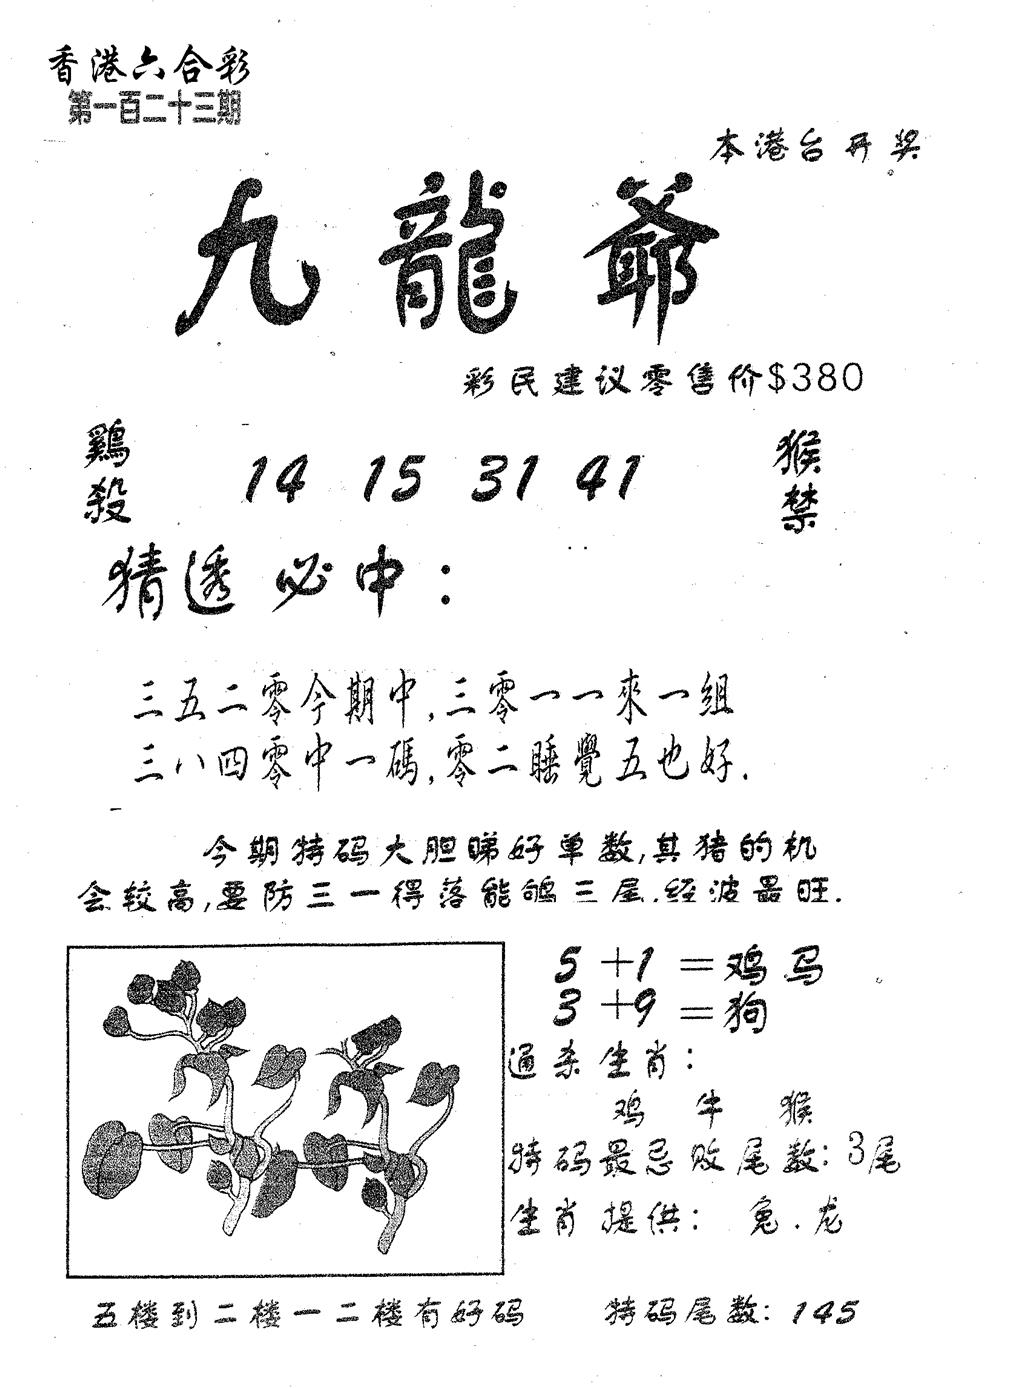 香港六合彩
第一百二十三期
本港台开奖
九龍爺
彩民建议零售价$380
鷄殺 14 15 31 41 猴禁
猜透必中：
三五二零今期中,三零一一來一組
三八四零中一碼,零二睡覺五也好.
今期特码大胆睇好单数,其猪的机
会较高,要防三一得落能鸲三尾.经波最旺.
5+1=鸡马
3+9=狗
通杀生肖：
鸡 牛 猴
特码最忌败尾数：3尾
生肖提供： 兔.龙
五楼到二楼一二楼有好码 特码尾数：145